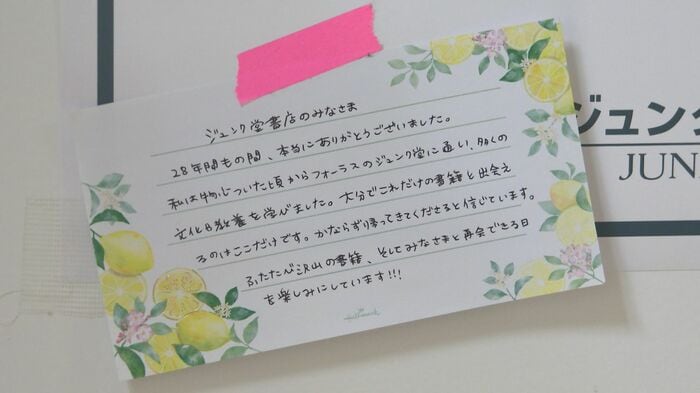 ジュンク堂書店のみなさま
28年間もの間、本当にありがとうございました。
私は物心ついた頃からフォーラスのジュンク堂に通い、多くの
文化的教養を学びました。大分でこれだけの書籍と出会え
るのはここだけです。かならず帰ってきてくださると信じています。
ふたたび沢山の書籍、そしてみなさまと再会できる日
を楽しみにしています!!!
Hallmark
ジュンク
JUN